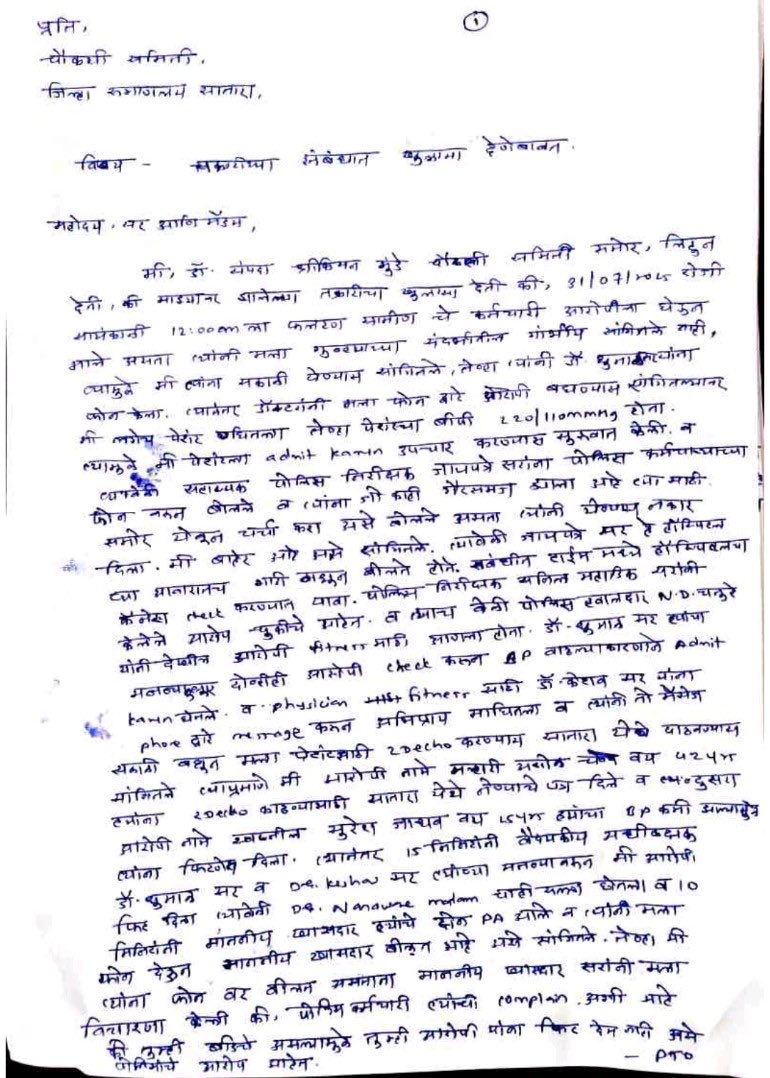 ①
प्रति,
चौकशी समिती,
जिल्हा रुग्णालय सातारा,
विषय - तक्रारीच्या संबंधात खुलासा देणेबाबत.
महोदय, सर आणि मॅडम,
मी, डॉ. संपदा मुंडे चौकशी समिती समोर, लिहून
देती, की माझ्यावर झालेल्या तक्रारीचा खुलासा देती की, 31/07/2025 रोजी
12:00am ला फलटण ग्रामीण चे कर्मचारी आरोपीला घेऊन
आले असता त्यांनी मला गुन्ह्याच्या संदर्भातील गांभीर्य सांगितले नाही,
त्यामुळे मी त्यांना सकाळी येण्यास सांगितले, तेव्हा त्यांनी डॉ. त्यांना
फोन केला. त्यानंतर डॉक्टरांनी मला फोन द्वारे आरोपी बघण्यास सांगितल्यावर
मी लगेच पेशंट बघितला तेव्हा पेशंटचा बीपी 220/110mmHg होता.
त्यामुळे मी पेशंटला admit करून उपचार करण्यास सुरुवात केली. व
त्यावेळी सहाय्यक पोलिस निरीक्षक जायपत्रे सरांना पोलिस कर्मचाऱ्याच्या
फोन वरून बोलले व त्यांना जो काही गैरसमज झाला आहे त्या साठी
समोर येऊन चर्चा करा असे बोलले असता त्यांनी येण्यास नकार
दिला. मी बाहेर आहे असे सांगितले. त्यावेळी जायपत्रे सर हे हॉस्पिटल
च्या आवारातच गाडी बोलत होते. संबंधीत टाईम मध्ये हॉस्पिटलचा
कॅमेरा check करण्यात यावा. पोलिस निरीक्षक महाडिक सरांनी
केलेले आरोप चुकीचे आहेत. व त्याच वेळी पोलिस हवालदार N.D. चतुरे
यांनी देखील आरोपी fitness साठी आणला होता. डॉ. सर त्यांच्या
दोन्हीही आरोपी check करून BP वाढल्याकारणाने Admit
करून घेतले. व physician fitness साठी डॉ. सर यांना
phone द्वारे message करून अभिप्राय मागितला व त्यांनी तो मॅसेज
सकाळी बघून मला पेशंटसाठी 2Decho करण्यास सातारा येथे पाठवण्यास
सांगितले त्याप्रमाणे मी आरोपी नामे वय 42yr
ह्यांना 2Decho काढण्यासाठी सातारा येथे नेण्याचे पत्र दिले व दुसरा
आरोपी नामे स्वप्नील सुरेश जाधव वय ह्यांचा BP कमी आल्यामुळे
त्यांना फिटनेस दिला. त्यानंतर 15 मिनिटांनी वैद्यकीय अधीक्षक
डॉ. सर व Dr. सर त्यांच्या मी आरोपी
फिट दिला त्यावेळी Dr. madam यांची सल्ला घेतला व 10
मिनिटांनी माननीय खासदार ह्यांचे दोन PA आले व त्यांनी मला
फोन देऊन माननीय खासदार बोलत आहे असे सांगितले. तेव्हा मी
त्यांना फोन वर बोलत असताना माननीय खासदार सरांनी मला
विचारणा केली की, पोलिस कर्मचारी त्यांची complain अशी आहे
की तुम्ही बीडचे असल्यामुळे तुम्ही आरोपी यांना फिट देत नाही असे
पोलिसांचे आरोप आहेत.
- PTO